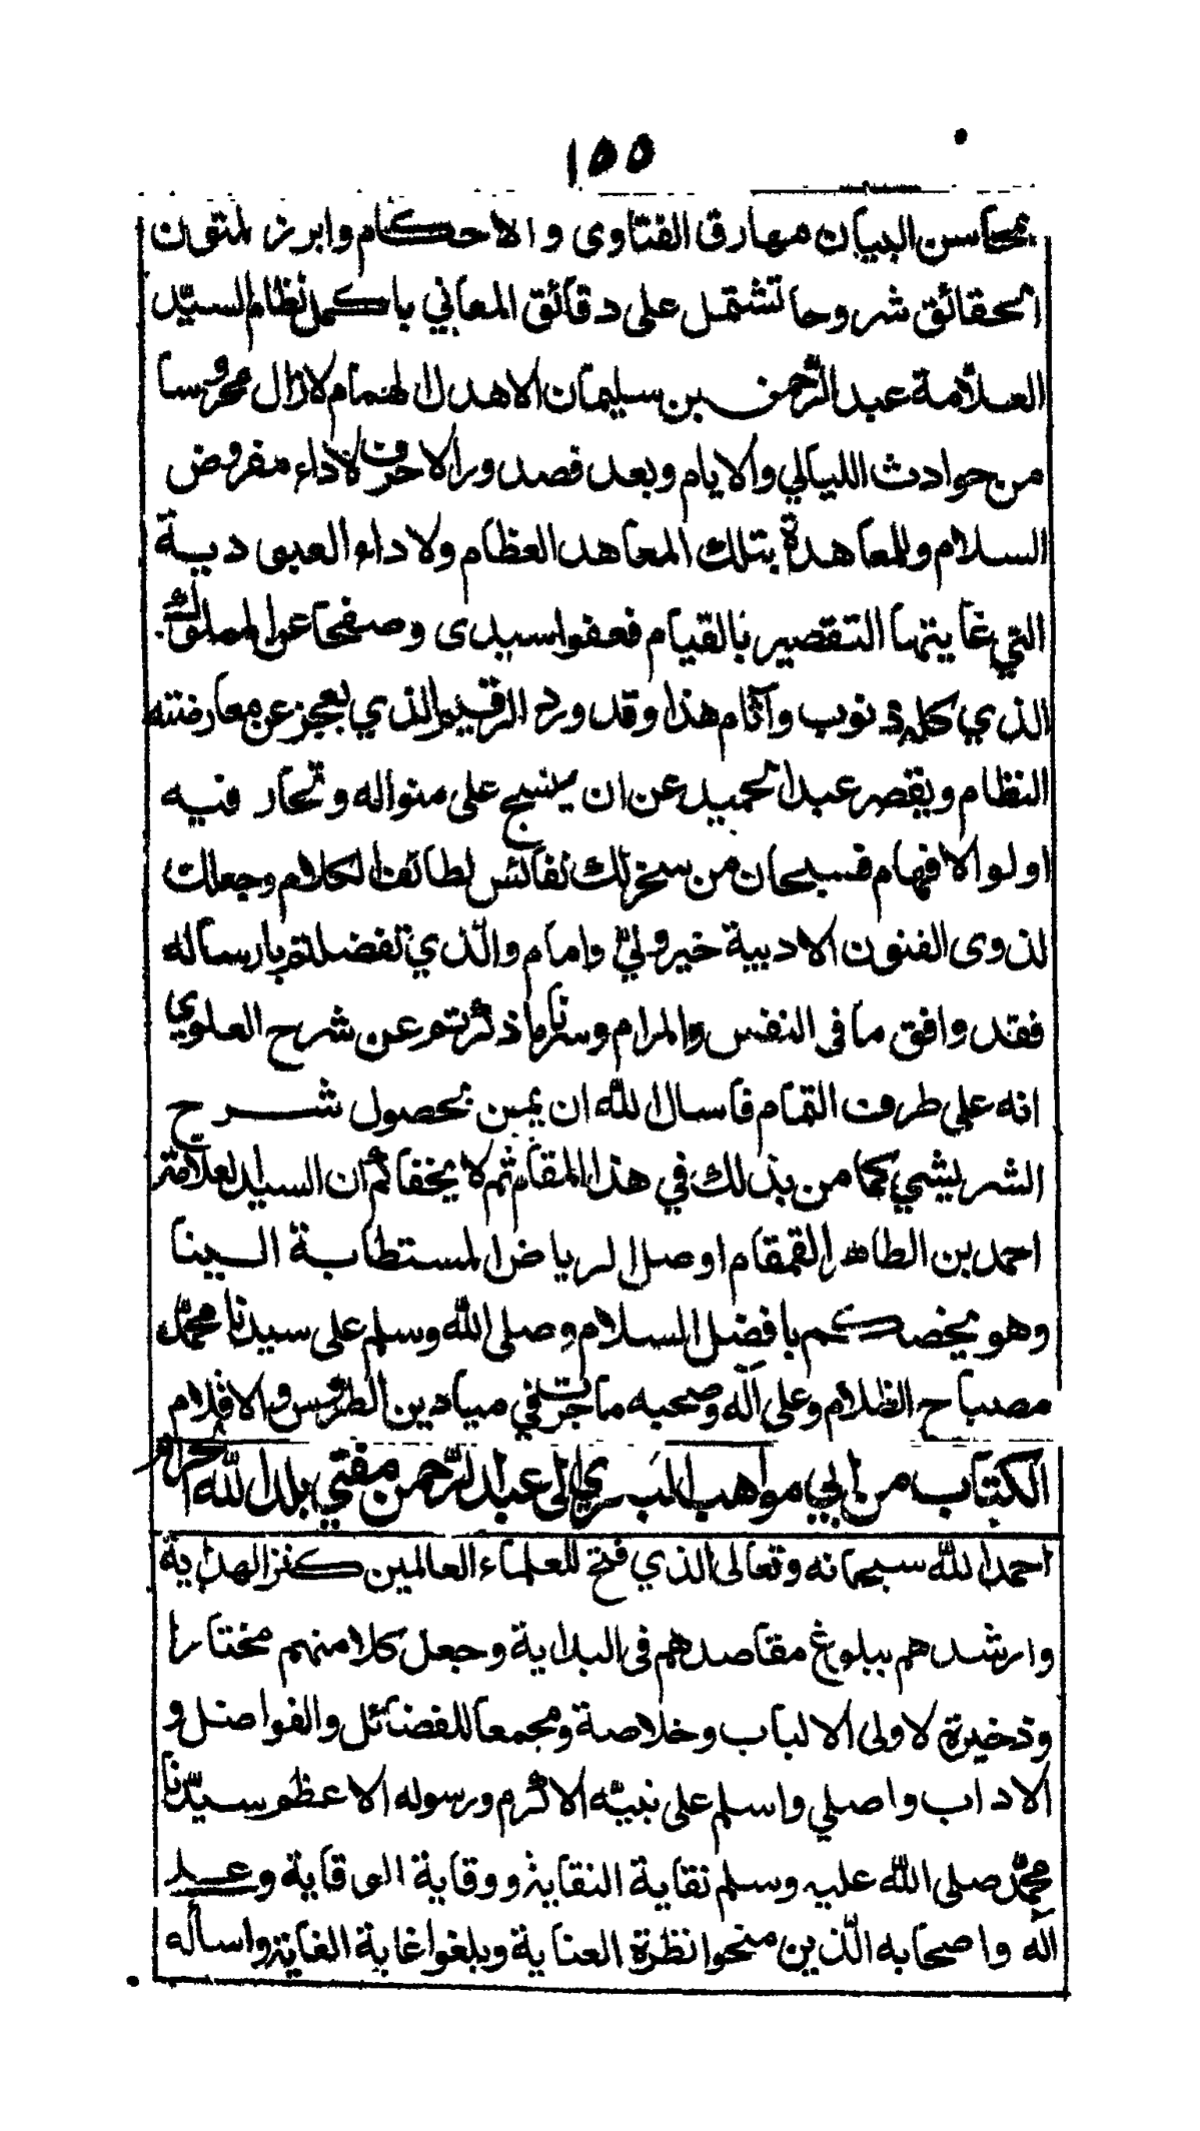 ١٥٥
بمحاسن البيان مهارق الفتاوى والاحكام وابرز لمتون
الحقائق شروحا تشتمل على دقائق المعاني باكمل نظام السيّد
العلامة عبد الرّحمن بن سليمان الاهدل الهمام لازال محروسا
من حوادث الليالي والايام وبعد فصدور الاحرف لاداء مفروض
السلام وللمعاهدة بتلك المعاهد العظام ولاداء العبودية
التي غايتها التقصير بالقيام فعفوا سيدى وصفحا عن المملوك
الذي كله ذنوب وآثام هذا وقد ورد الرقيم الذي يعجز عن معارضته
النظام ويقصر عبد الحميد عن ان ينسج على منواله وتحار فيه
اولو الافهام فسبحان من سخر لك نفائس لطائف الكلام وجعلك
لذوى الفنون الادبية خير وليّ وامام والّذي تفضلتم بارساله
فقد وافق ما فى النفس والمرام وسرنا ما ذكرتم عن شرح العلوي
انه على طرف التمام فاسال الله ان يمن بحصول شرح
الشريشي كما من بذلك في هذا المقام ثم لا يخفاكم أن السيد العلامة
احمد بن الطاهر القمقام اوصل الرياض المستطابة الينا
وهو يخصكم بافضل السلام وصلى الله وسلم على سيدنا محمّد
مصباح الظلام وعلى آله وصحبه ما جرت في ميادين الطروس والاقلام
الكتاب من ابي مواهب البري الى عبد الرّحمن مفتي بلد الله الحرام
احمد الله سبحانه وتعالى الذي فتح للعلماء العالمين كنز الهداية
وارشدهم ببلوغ مقاصدهم فى البداية وجعل كلا منهم مختارا
وذخيرة لاولى الالباب وخلاصة ومجمعا للفضائل والفواضل و
الاداب واصلي واسلم على نبيّه الاكرم ورسوله الاعظم سيّدنا
محمّد صلى الله عليه وسلم نقاية النقاية ووقاية الوقاية وعلى
آله واصحابه الّذين منحوا نظرة العناية وبلغوا غاية الغاية واسأله